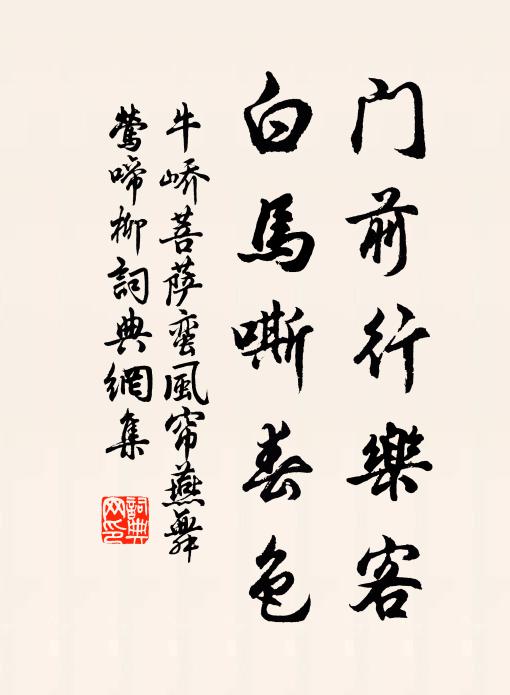 门前行樂客
白馬嘶春色
牛嶠菩薩蛮風帘燕舞
鶯啼柳詞典網集
詞典
网印